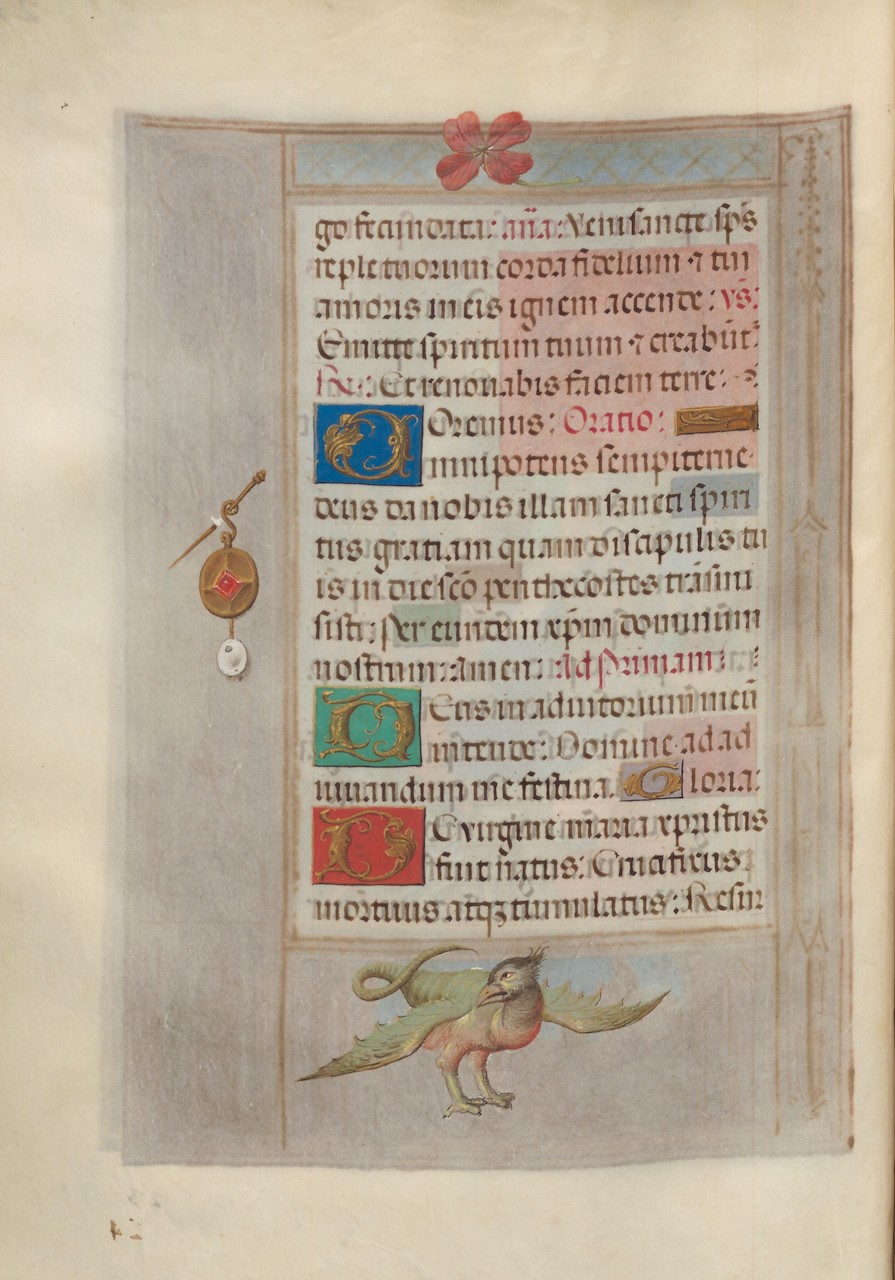 go fecundata: an̄a: Veni sancte sp̄s
reple tuorum corda fidelium ⁊ tui
amoris in eis ignem accende: vs̄:
Emitte spiritum tuum ⁊ creabūt᷑
R. Et renouabis faciem terre:
Oremus: Oratio:
Omnipotens sempiterne
deus da nobis illam sancti spiri
tus gratiam quam discipulis tu
is in die sc̄o penthecostes trāsmi
sisti: Per eundem xp̄m dominum
nostrum: Amen: Ad Primam:
Deus in adiutorium meū
intende: Domine ad ad
iuuandum me festina. Gloria:
De virgine maria xpristus
fuit natus: Crucifixus
mortuus atqꝫ tumulatus: Resur